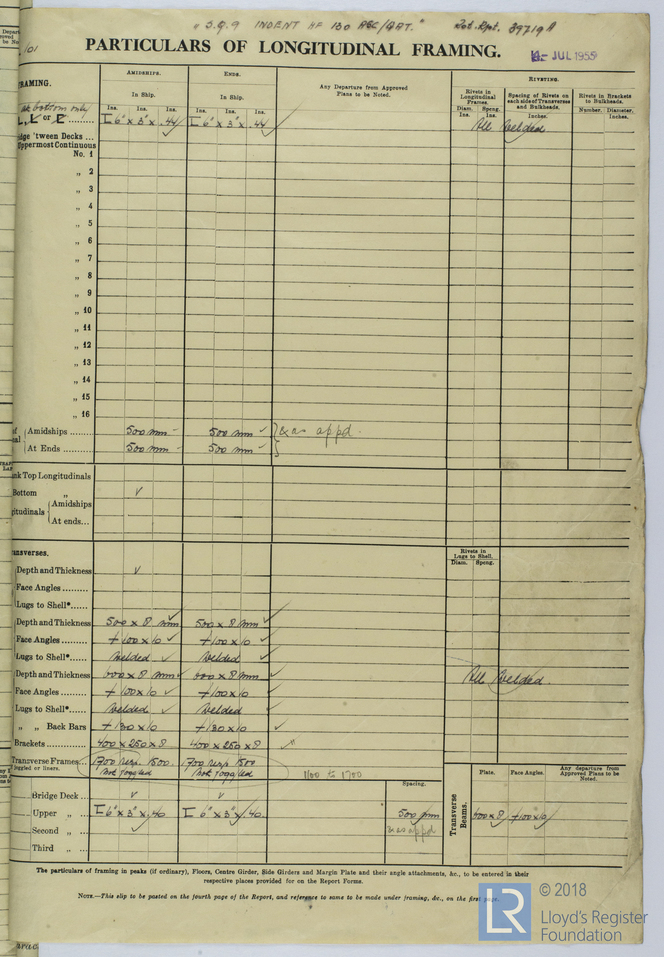 "S.Q.9 INDENT HF 130 ABC/GAT." Rot. Rpt. 39719A
101
PARTICULARS OF LONGITUDINAL FRAMING.
JUL 1955
RAMING.
AMIDSHIPS.
ENDS.
Any Departure from Approved Plans to be Noted.
RIVETING.
In Ship.
In Ship.
Rivets in Longitudinal Frames.
Spacing of Rivets on each side of Transverse and Bulkheads.
Rivets in Brackets to Bulkheads.
Ins. Ins. Ins. Ins. Ins. Ins.
Diam. Ins. Spcng. Ins. Inches. Number. Diameter, Inches.
bottom only
or
6" x 3" x .44 6" x 3" x .44 All Welded
dge 'tween Decks ...
ppermost Continuous
No. 1
„ 2
„ 3
„ 4
„ 5
„ 6
„ 7
„ 8
„ 9
„ 10
„ 11
„ 12
„ 13
„ 14
„ 15
„ 16
Amidships ........ 500 mm 500 mm & as appd.
At Ends ......... 500 mm 500 mm
nk Top Longitudinals
Bottom „
gitudinals Amidships
At ends...
ansverses.
Rivets in Lugs to Shell.
Diam. Spcng.
Depth and Thickness
Face Angles .........
Lugs to Shell*......
Depth and Thickness 500 x 8 mm 500 x 8 mm
Face Angles ......... 100 x 10 100 x 10
Lugs to Shell*...... Welded Welded
Depth and Thickness 600 x 8 mm 600 x 8 mm All Welded.
Face Angles ......... 100 x 10 100 x 10
Lugs to Shell*...... Welded Welded
„ „ Back Bars 130 x 10 130 x 10
Brackets ............. 400 x 250 x 8 400 x 250 x 8
Transverse Frames... 1700 resp. 1500. 1700 resp. 1500 1100 to 1700
oggled or liners. not joggled not joggled
Spacing.
Transverse Beams.
Plate. Face Angles. Any departure from Approved Plans to be Noted.
Bridge Deck ...
Upper „ ... 6" x 3" x .40 6" x 3" x .40 500 mm 600 x 8 100 x 10
Second „ ... as appd
Third „ ...
The particulars of framing in peaks (if ordinary), Floors, Centre Girder, Side Girders and Margin Plate and their angle attachments, &c., to be entered in their
respective places provided for on the Report Forms.
NOTE.—This slip to be posted on the fourth page of the Report, and reference to same to be made under framing, &c., on the first page.
LR
© 2018
Lloyd's Register
Foundation